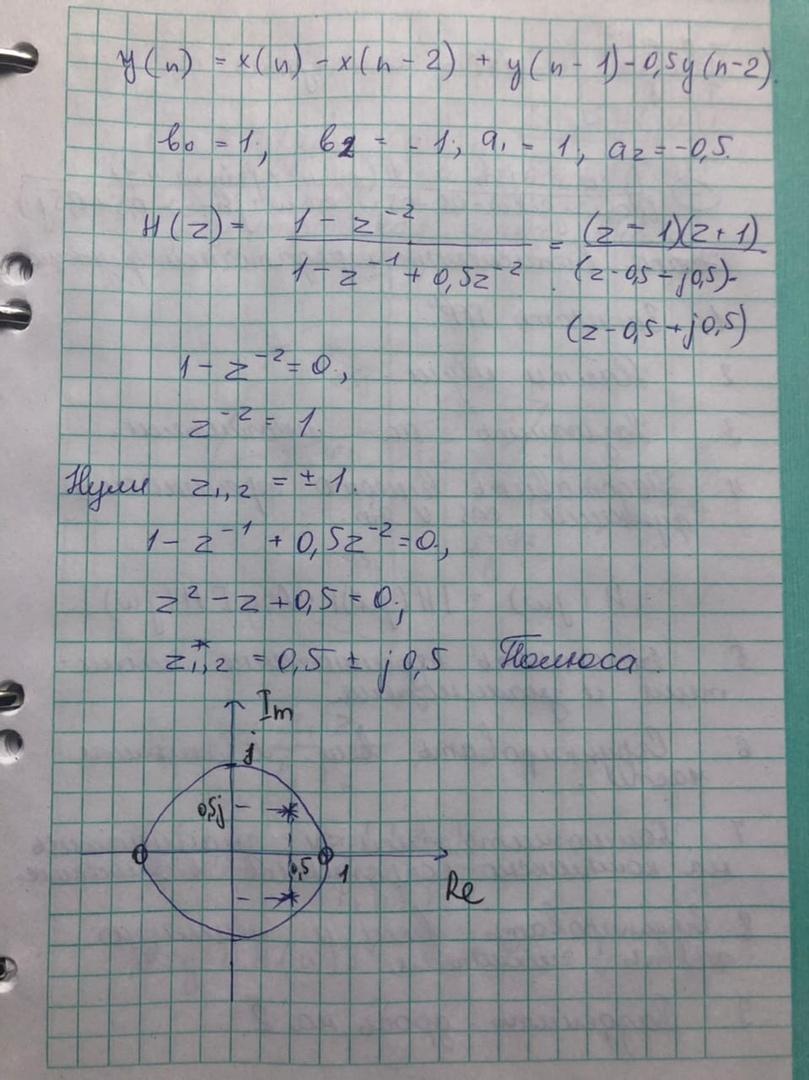 y(n) = x(n) - x(n-2) + y(n-1) - 0,5y(n-2).
b₀ = 1; b₂ = -1; a₁ = 1; a₂ = -0,5.
H(z) = (1 - z⁻²) / (1 - z⁻¹ + 0,5z⁻²) = (z-1)(z+1) / (z-0,5-j0,5)·
(z-0,5+j0,5)
1 - z⁻² = 0;
z⁻² = 1.
Нули z₁,₂ = ±1.
1 - z⁻¹ + 0,5z⁻² = 0;
z² - z + 0,5 = 0;
z*₁,₂ = 0,5 ± j0,5 Полюса.
Im
j
0,5j
0,5
1
Re